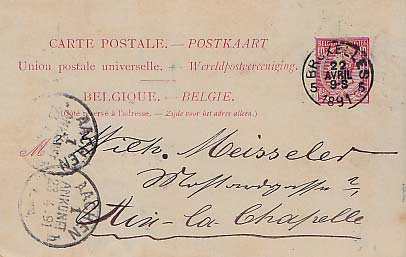 CARTE POSTALE. — POSTKAART
Union postale universelle. — Wereldpostvereeniging.
BELGIQUE. — BELGIE.
(Côté réservé à l'adresse. — Zijde voor het adres alleen.)
BRUXELLES 5
22
AVRIL
9-S
1891
M Wilh. Meisseler
Aix-la-Chapelle
AACHEN
1
AACHEN
1
ANKUNFT
23 4 91